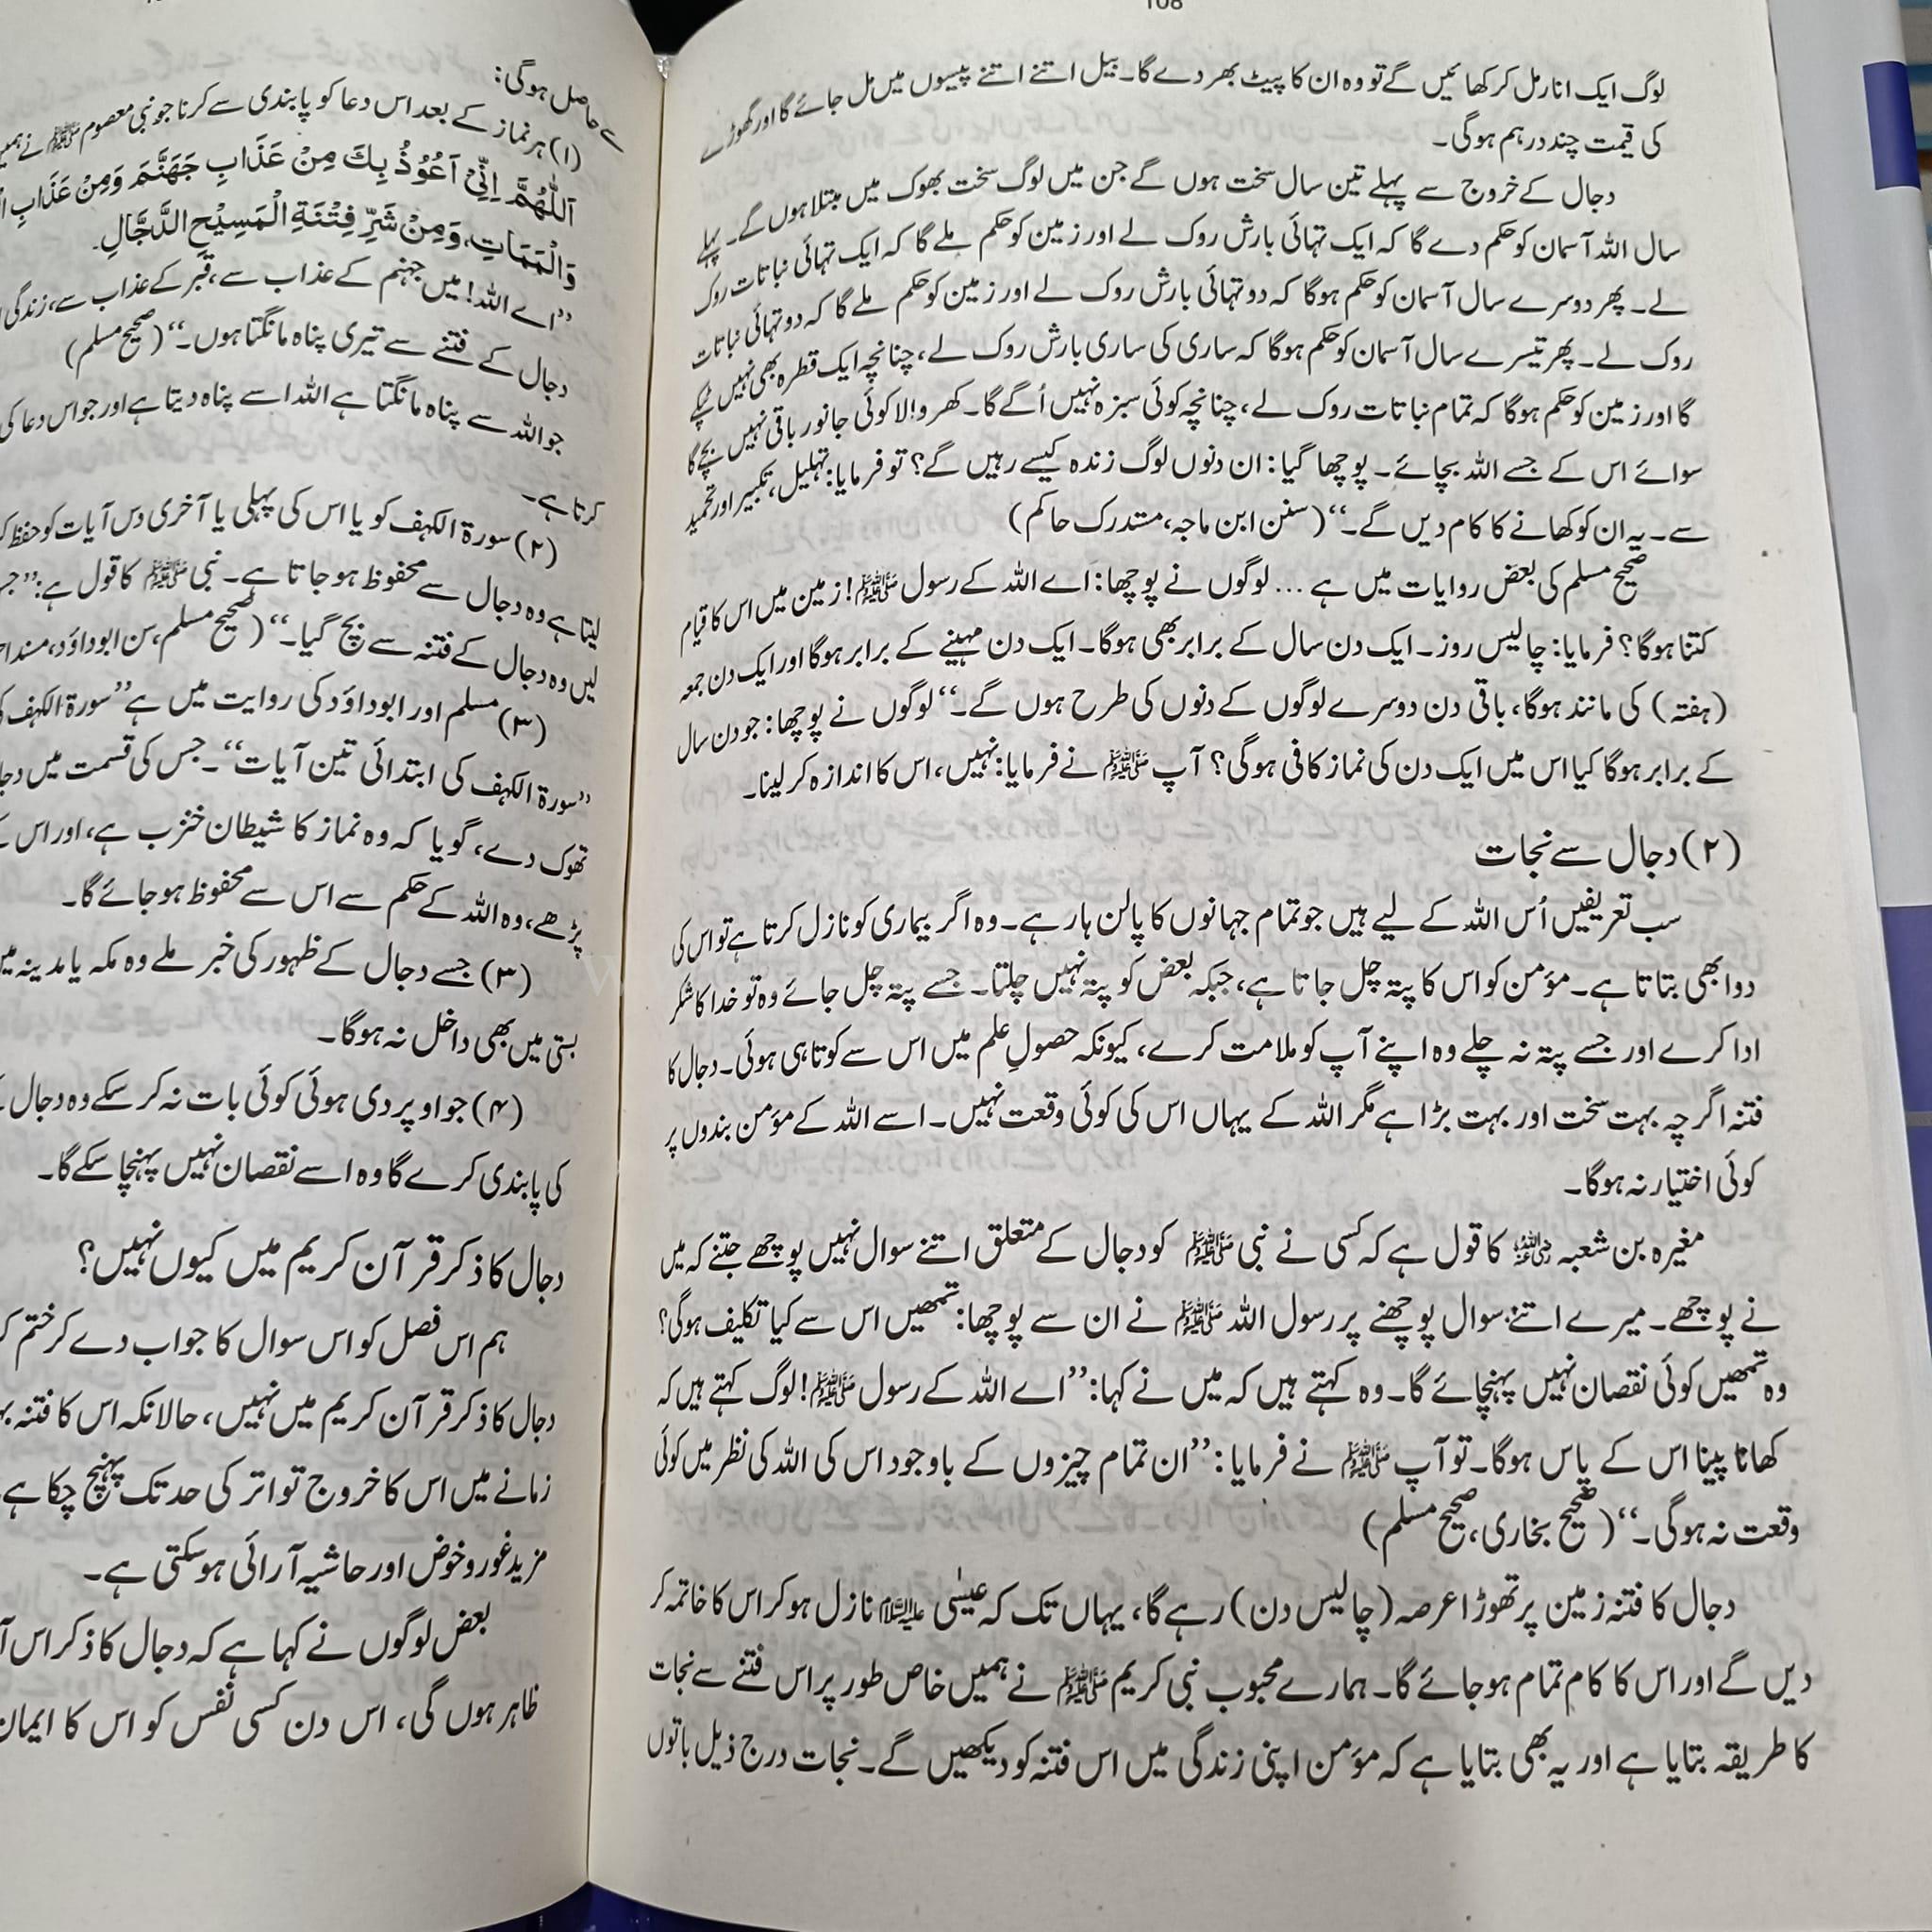 108
لوگ ایک انار مل کر کھائیں گے تو وہ ان کا پیٹ بھر دے گا۔ بیل اتنے اتنے پیسوں میں مل جائے گا اور گھوڑے
کی قیمت چند درہم ہوگی۔
دجال کے خروج سے پہلے تین سال سخت ہوں گے جن میں لوگ سخت بھوک میں مبتلا ہوں گے۔ پہلے
سال اللہ آسمان کو حکم دے گا کہ ایک تہائی بارش روک لے اور زمین کو حکم ملے گا کہ ایک تہائی نباتات روک
لے۔ پھر دوسرے سال آسمان کو حکم ہوگا کہ دو تہائی بارش روک لے اور زمین کو حکم ملے گا کہ دو تہائی نباتات
روک لے۔ پھر تیسرے سال آسمان کو حکم ہوگا کہ ساری کی ساری بارش روک لے، چنانچہ ایک قطرہ بھی نہیں ٹپکے
گا اور زمین کو حکم ہوگا کہ تمام نباتات روک لے، چنانچہ کوئی سبزہ نہیں اُگے گا۔ کھروالا کوئی جانور باقی نہیں بچے گا
سوائے اس کے جسے اللہ بچائے۔ پوچھا گیا: ان دنوں لوگ زندہ کیسے رہیں گے؟ تو فرمایا: تہلیل، تکبیر اور تحمید
سے۔ یہ ان کو کھانے کا کام دیں گے۔“ (سنن ابن ماجہ، مستدرک حاکم)
صحیح مسلم کی بعض روایات میں ہے ... لوگوں نے پوچھا: اے اللہ کے رسول ﷺ! زمین میں اس کا قیام
کتنا ہوگا؟ فرمایا: چالیس روز۔ ایک دن سال کے برابر بھی ہوگا۔ ایک دن مہینے کے برابر ہوگا اور ایک دن جمعہ
(ہفتہ) کی مانند ہوگا، باقی دن دوسرے لوگوں کے دنوں کی طرح ہوں گے۔“ لوگوں نے پوچھا: جو دن سال
کے برابر ہوگا کیا اس میں ایک دن کی نماز کافی ہوگی؟ آپ ﷺ نے فرمایا: نہیں، اس کا اندازہ کر لینا۔
(۲) دجال سے نجات
سب تعریفیں اُس اللہ کے لیے ہیں جو تمام جہانوں کا پالن ہار ہے۔ وہ اگر بیماری کو نازل کرتا ہے تو اس کی
دوا بھی بتاتا ہے۔ مؤمن کو اس کا پتہ چل جاتا ہے، جبکہ بعض کو پتہ نہیں چلتا۔ جسے پتہ چل جائے وہ تو خدا کا شکر
ادا کرے اور جسے پتہ نہ چلے وہ اپنے آپ کو ملامت کرے، کیونکہ حصولِ علم میں اس سے کوتاہی ہوئی۔ دجال کا
فتنہ اگرچہ بہت سخت اور بہت بڑا ہے مگر اللہ کے یہاں اس کی کوئی وقعت نہیں۔ اسے اللہ کے مؤمن بندوں پر
کوئی اختیار نہ ہوگا۔
مغیرہ بن شعبہ رضی اللہ عنہ کا قول ہے کہ کسی نے نبی ﷺ کو دجال کے متعلق اتنے سوال نہیں پوچھے جتنے کہ میں
نے پوچھے۔ میرے اتنے سوال پوچھنے پر رسول اللہ ﷺ نے ان سے پوچھا: تمھیں اس سے کیا تکلیف ہوگی؟
وہ تمھیں کوئی نقصان نہیں پہنچائے گا۔ وہ کہتے ہیں کہ میں نے کہا: ”اے اللہ کے رسول ﷺ! لوگ کہتے ہیں کہ
کھانا پینا اس کے پاس ہوگا۔ تو آپ ﷺ نے فرمایا: ”ان تمام چیزوں کے باوجود اس کی اللہ کی نظر میں کوئی
وقعت نہ ہوگی۔“ (صحیح بخاری، صحیح مسلم)
دجال کا فتنہ زمین پر تھوڑا عرصہ (چالیس دن) رہے گا، یہاں تک کہ عیسٰی علیہ السلام نازل ہو کر اس کا خاتمہ کر
دیں گے اور اس کا کام تمام ہو جائے گا۔ ہمارے محبوب نبی کریم ﷺ نے ہمیں خاص طور پر اس فتنے سے نجات
کا طریقہ بتایا ہے اور یہ بھی بتایا ہے کہ مؤمن اپنی زندگی میں اس فتنہ کو دیکھیں گے۔ نجات درج ذیل باتوں
سے حاصل ہوگی:
(۱) ہر نماز کے بعد اس دعا کو پابندی سے کرنا جو نبی معصوم ﷺ نے ہمیں
اَللّٰهُمَّ اِنِّیْ اَعُوْذُ بِكَ مِنْ عَذَابِ جَهَنَّمَ وَمِنْ عَذَابِ
وَالْمَمَاتِ، وَمِنْ شَرِّ فِتْنَةِ الْمَسِيْحِ الدَّجَّالِ۔
”اے اللہ! میں جہنم کے عذاب سے، قبر کے عذاب سے، زندگی
دجال کے فتنے سے تیری پناہ مانگتا ہوں۔“ (صحیح مسلم)
جو اللہ سے پناہ مانگتا ہے اللہ اسے پناہ دیتا ہے اور جو اس دعا کی
کرتا ہے۔
(۲) سورۃ الکہف کو یا اس کی پہلی یا آخری دس آیات کو حفظ
لیتا ہے وہ دجال سے محفوظ ہو جاتا ہے۔ نبی ﷺ کا قول ہے: ”جس
لیں وہ دجال کے فتنہ سے بچ گیا۔“ (صحیح مسلم، سن ابوداؤد، مسند
(۳) مسلم اور ابوداؤد کی روایت میں ہے ”سورۃ الکہف
”سورۃ الکہف کی ابتدائی تین آیات“۔ جس کی قسمت میں
تھوک دے، گویا کہ وہ نماز کا شیطان خنزب ہے، اور اس
پڑھے، وہ اللہ کے حکم سے اس سے محفوظ ہو جائے گا۔
(۳) جسے دجال کے ظہور کی خبر ملے وہ مکہ یا مدینہ میں
بستی میں بھی داخل نہ ہوگا۔
(۴) جو اوپر دی ہوئی کوئی بات نہ کر سکے وہ دجال
کی پابندی کرے گا وہ اسے نقصان نہیں پہنچا سکے گا۔
دجال کا ذکر قرآن کریم میں کیوں نہیں؟
ہم اس فصل کو اس سوال کا جواب دے کر ختم
دجال کا ذکر قرآن کریم میں نہیں، حالانکہ اس کا فتنہ
زمانے میں اس کا خروج تواتر کی حد تک پہنچ چکا ہے
مزید غور و خوض اور حاشیہ آرائی ہو سکتی ہے۔
بعض لوگوں نے کہا ہے کہ دجال کا ذکر اس
ظاہر ہوں گی، اس دن کسی نفس کو اس کا ایمان